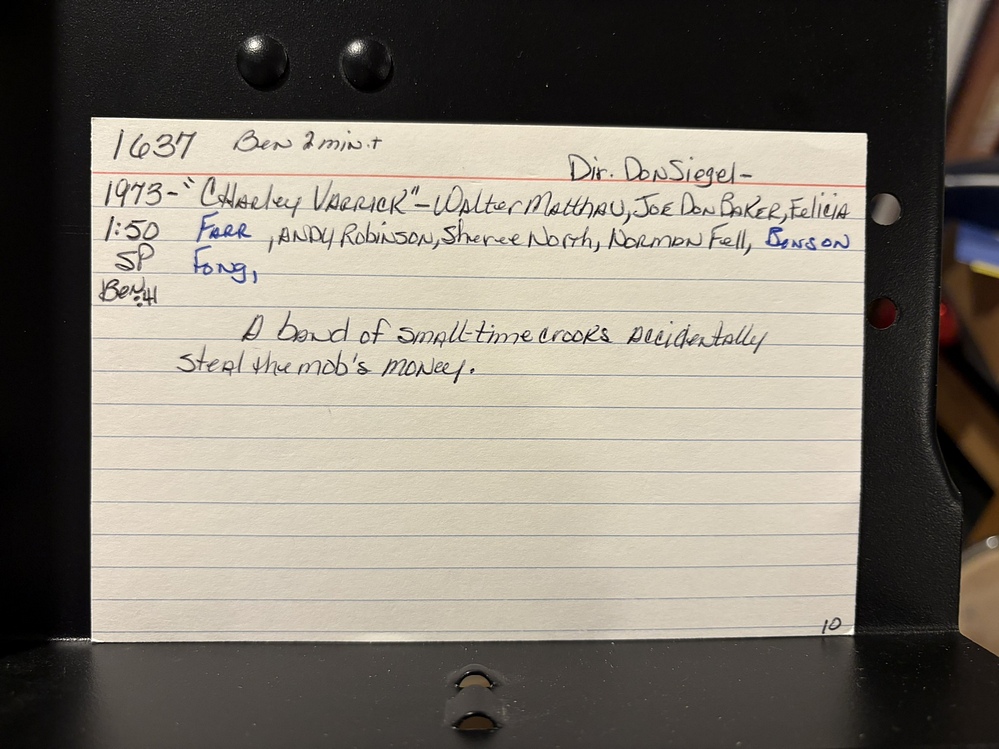 1637 Ben 2 min.+
Dir. Don Siegel-
1973-"Charley Varrick"-Walter Matthau, Joe Don Baker, Felicia
1:50 Farr, Andy Robinson, Sheree North, Norman Fell, Benson
SP Fong,
Ben:41
A band of small-time crooks accidentally
steal the mob's money.
10